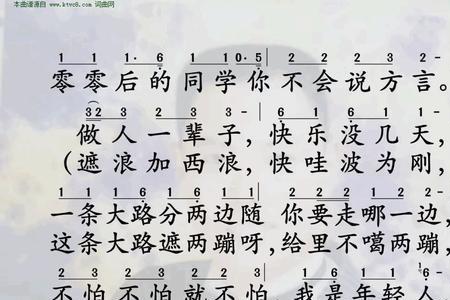 本曲谱源自 www.ktvc8.com 词曲网
1 1 1· 6 1 1 0· 5 2 2 2 3 2 -
零零后的同学你不会说方言。
3 2 3 2 3 3 - 6 1 6 1 1 -
做人一辈子，快乐没几天，
（遮浪加西浪，快哇波为刚，
1 1 1 6 1 6 1 1 2 2 2 1 2 -
一条大路分两边随 你要走哪一边，
这条大路遮两蹦呀，给里不噶两蹦，
2 3 2 3 2 2 3 2 1 2 1 6 -
不怕不怕就不怕，我是年轻人，